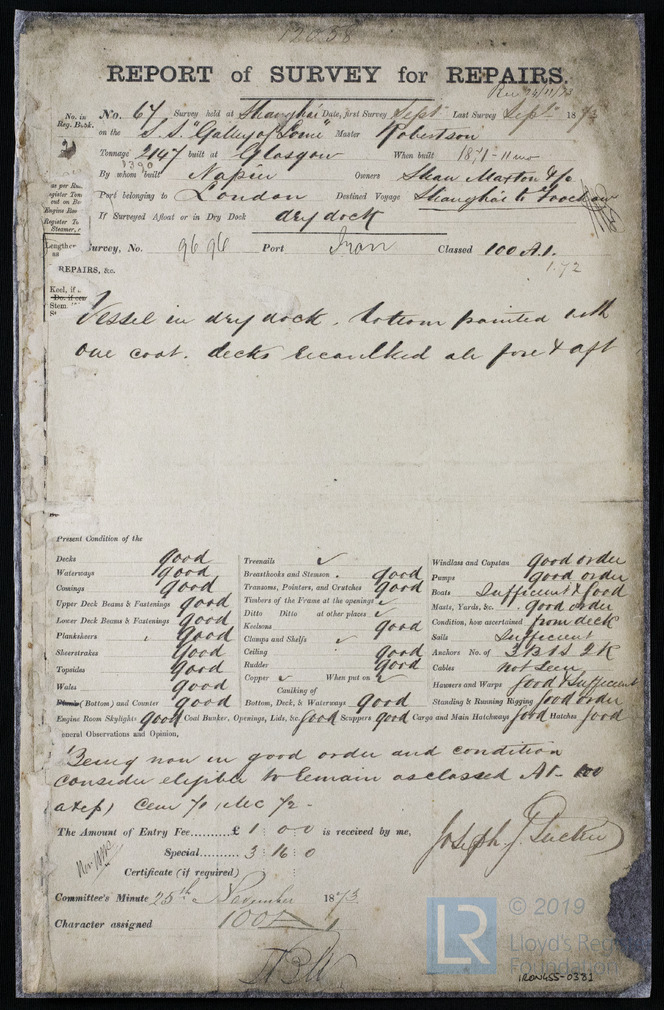 12058
REPORT of SURVEY for REPAIRS.
Rec 24/11/73
No. in Reg. Book.
No. 67 Survey held at Shanghai Date, first Survey Sept Last Survey Sept 1873
on the S.S. "Galley of Lorne" Master Robertson
Tonnage 2147 built at Glasgow When built 1871-11mo
1390
By whom built Napier Owners Shaw Maxton & Co
Port belonging to London Destined Voyage Shanghai to Foochow
If Surveyed Afloat or in Dry Dock dry dock
Survey, No. 9696 Port Iron Classed 100 A.1.
1.72
REPAIRS, &c.
Vessel in dry dock. bottom painted with
one coat. decks recaulked all fore & aft
Present Condition of the
Decks good Treenails ✓ Windlass and Capstan good order
Waterways good Breasthooks and Stemson . good Pumps good order
Comings good Transoms, Pointers, and Crutches good Boats Sufficient & good
Upper Deck Beams & Fastenings good Timbers of the Frame at the openings ✓ Masts, Yards, &c. good order
Lower Deck Beams & Fastenings good Ditto Ditto at other places ✓ Condition, how ascertained from deck
Planksheers good Keelsons good Sails Sufficient
Sheerstrakes good Clamps and Shelfs ✓ Anchors No. of 3 B 1 S 2 K
Topsides good Ceiling good Cables not seen
Wales good Rudder good Hawsers and Warps good & sufficient
(Bottom) and Counter good Copper ✓ When put on ✓ Standing & Running Rigging good order
Caulking of
Bottom, Deck, & Waterways good
Engine Room Skylights good Coal Bunker, Openings, Lids, &c. good Scuppers good Cargo and Main Hatchways good Hatches good
eneral Observations and Opinion,
Being now in good order and condition
consider eligible to remain as classed A1- 100
The Amount of Entry Fee..........£ 1 : 0 : 0 is received by me,
Special.......... 3 : 16 : 0
Joseph J. Tucker
Certificate (if required)
Committee's Minute 25th November 1873
Character assigned 100A1
LR
© 2019
Lloyd's Register
Foundation
IRON455-0381